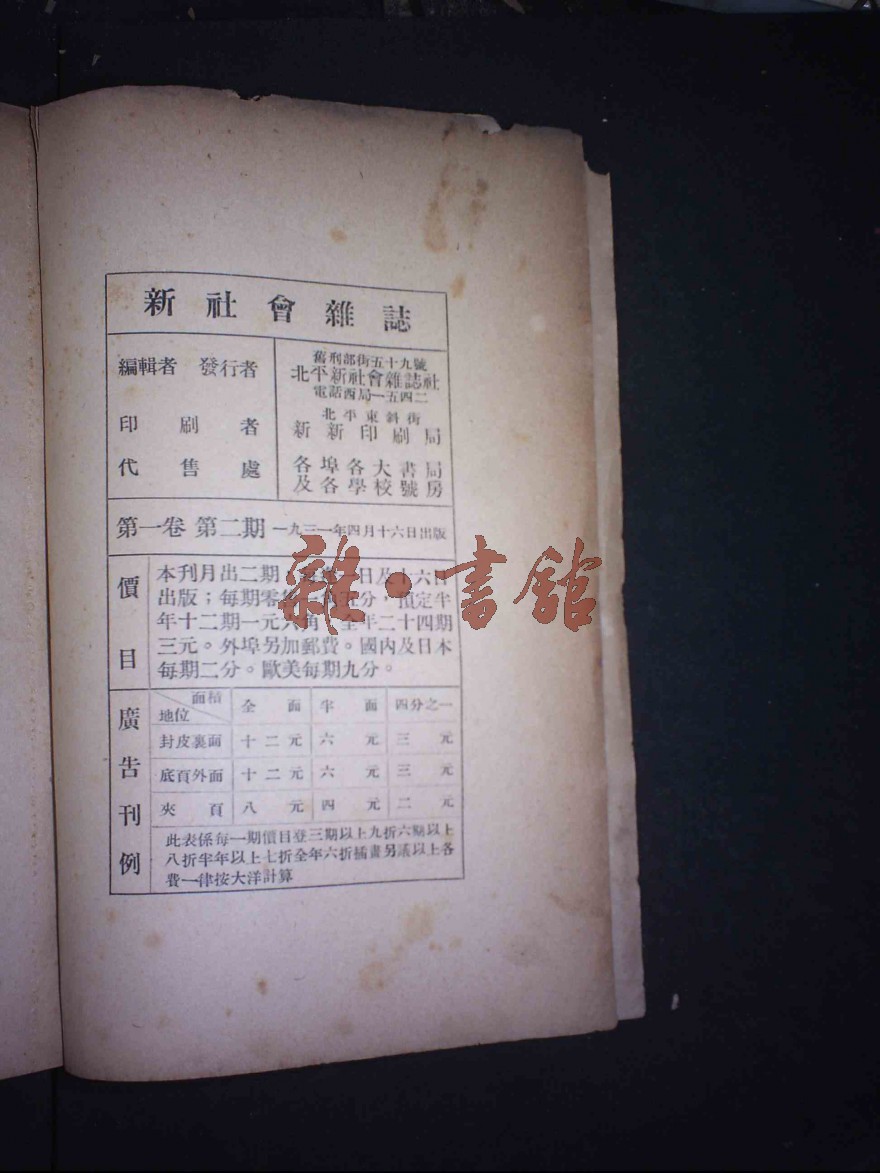 新社會雜誌
編輯者 發行者
舊刑部街五十九號
北平新社會雜誌社
電話西局一五四二
印刷者
北平東斜街
新新印刷局
代售處
各埠各大書局
及各學校號房
第一卷 第二期 一九三一年四月十六日出版
價目
本刊月出二期，日及十六日
出版；每期零五分，預定半
年十二期一元六角，全年二十四期
三元。外埠另加郵費。國內及日本
每期二分。歐美每期九分。
廣告刊例
面積 地位 全面 半面 四分之一
封皮裏面 十二元 六元 三元
底頁外面 十二元 六元 三元
夾頁 八元 四元 二元
此表係每一期價目登三期以上九折六期以上
八折半年以上七折全年六折插畫另議以上各
費一律按大洋計算
雜·書館